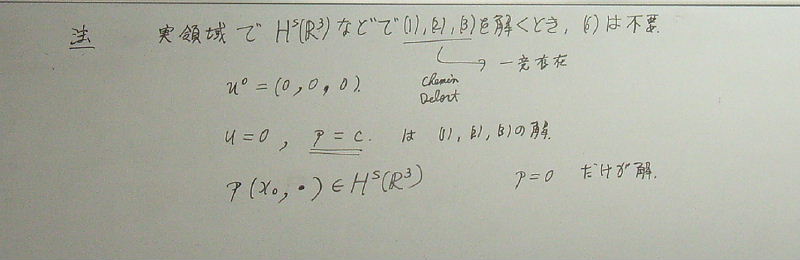 注 実領域で H^s(ℝ^3) などで (1), (2), (3) を解くとき, (6) は不要.
→ 一意存在
Chemin
Delort
u^0 = (0, 0, 0).
u = 0 , p = c. は (1), (2), (3) の解.
p(x_0, •) ∈ H^s(ℝ^3) p = 0 だけが解.